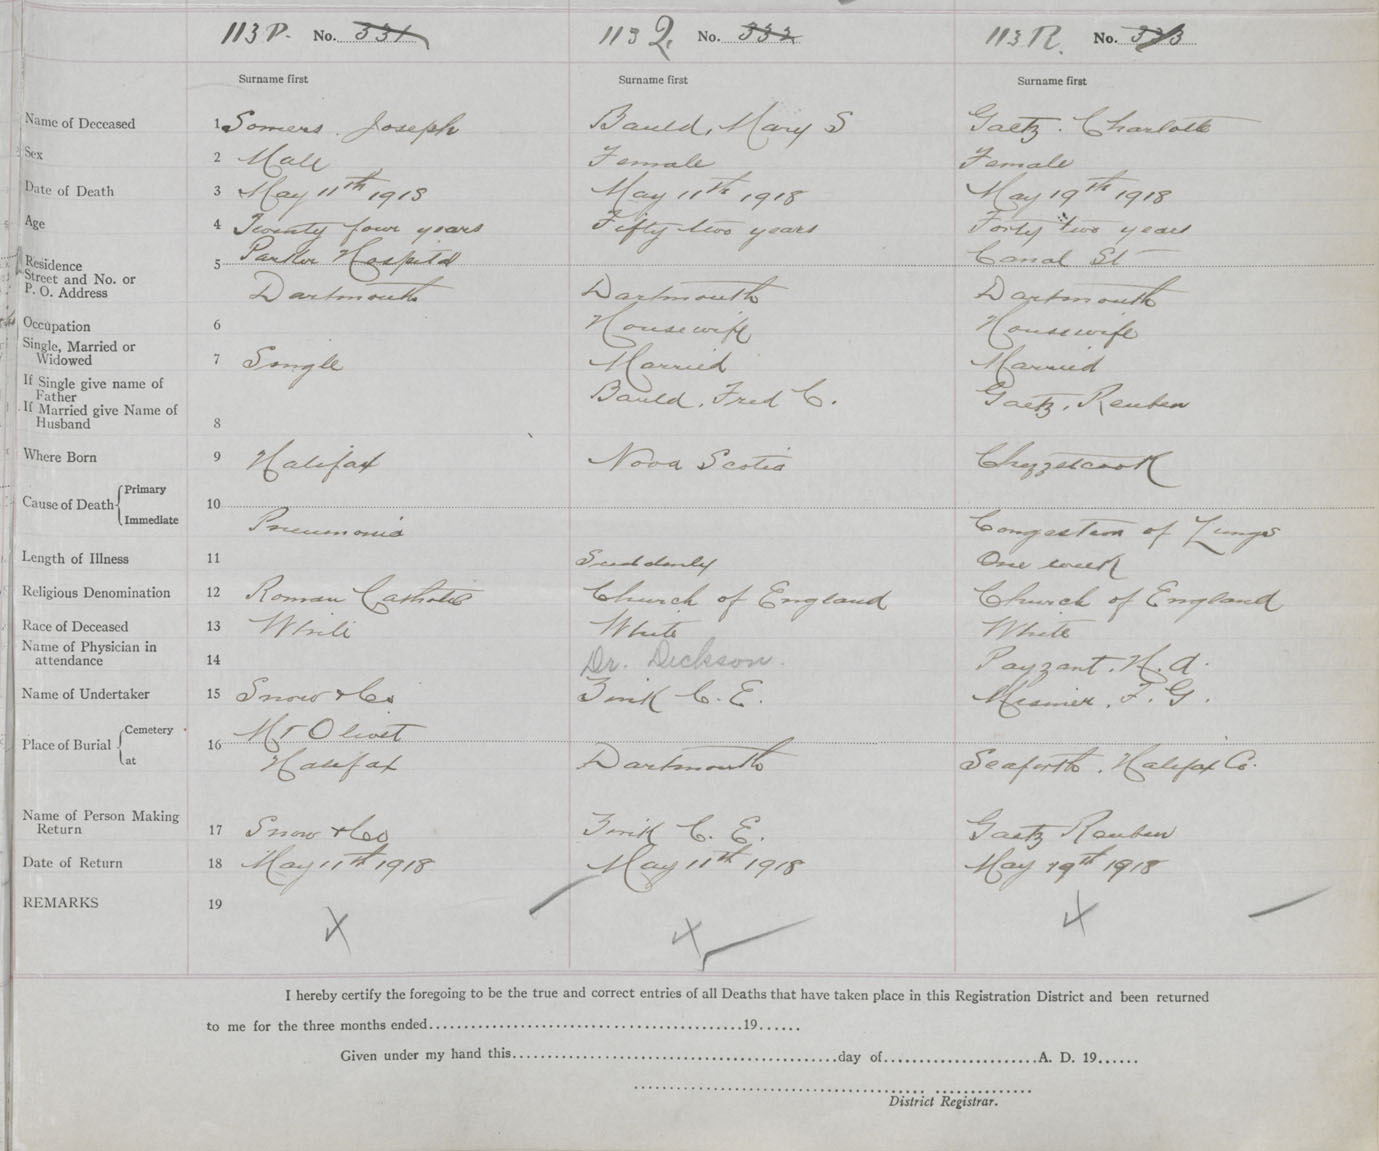 113 P. No. 331 113 Q. No. 332 113 R. No. 333
Surname first Surname first Surname first
Name of Deceased 1 Somers. Joseph Bauld, Mary S Gaetz. Charlotte
Sex 2 Male Female Female
Date of Death 3 May 11th 1918 May 11th 1918 May 19th 1918
Age 4 Twenty four years Fifty two years Forty two years
Residence 5 Parker Hospital Canal St
Street and No. or
P. O. Address Dartmouth Dartmouth Dartmouth
Occupation 6 Housewife Housewife
Single, Married or
Widowed 7 Single Married Married
If Single give name of
Father Bauld, Fred C. Gaetz, Reuben
If Married give Name of
Husband 8
Where Born 9 Halifax Nova Scotia Chezzetcook
Cause of Death Primary 10
Immediate Pneumonia Congestion of Lungs
Length of Illness 11 Suddenly One week
Religious Denomination 12 Roman Catholic Church of England Church of England
Race of Deceased 13 White White White
Name of Physician in
attendance 14 Dr. Dickson. Payzant. H. A.
Name of Undertaker 15 Snow & Co Zink C. E. F. G.
Place of Burial Cemetery 16 Mt Olivet
at Halifax Dartmouth Seaforth, Halifax Co.
Name of Person Making
Return 17 Snow & Co Zink C. E. Gaetz Reuben
Date of Return 18 May 11th 1918 May 11th 1918 May 19th 1918
REMARKS 19
X X X
I hereby certify the foregoing to be the true and correct entries of all Deaths that have taken place in this Registration District and been returned
to me for the three months ended..........19......
Given under my hand this..........day of..........A. D. 19......
District Registrar.